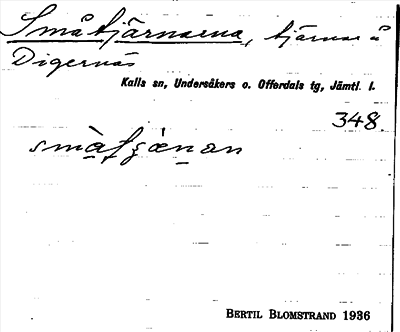 Småtjärnarna, tjärnar å
Digernäs
Kalls sn, Undersåkers o. Offerdals tg, Jämtl. l.
348.
BERTIL BLOMSTRAND 1936